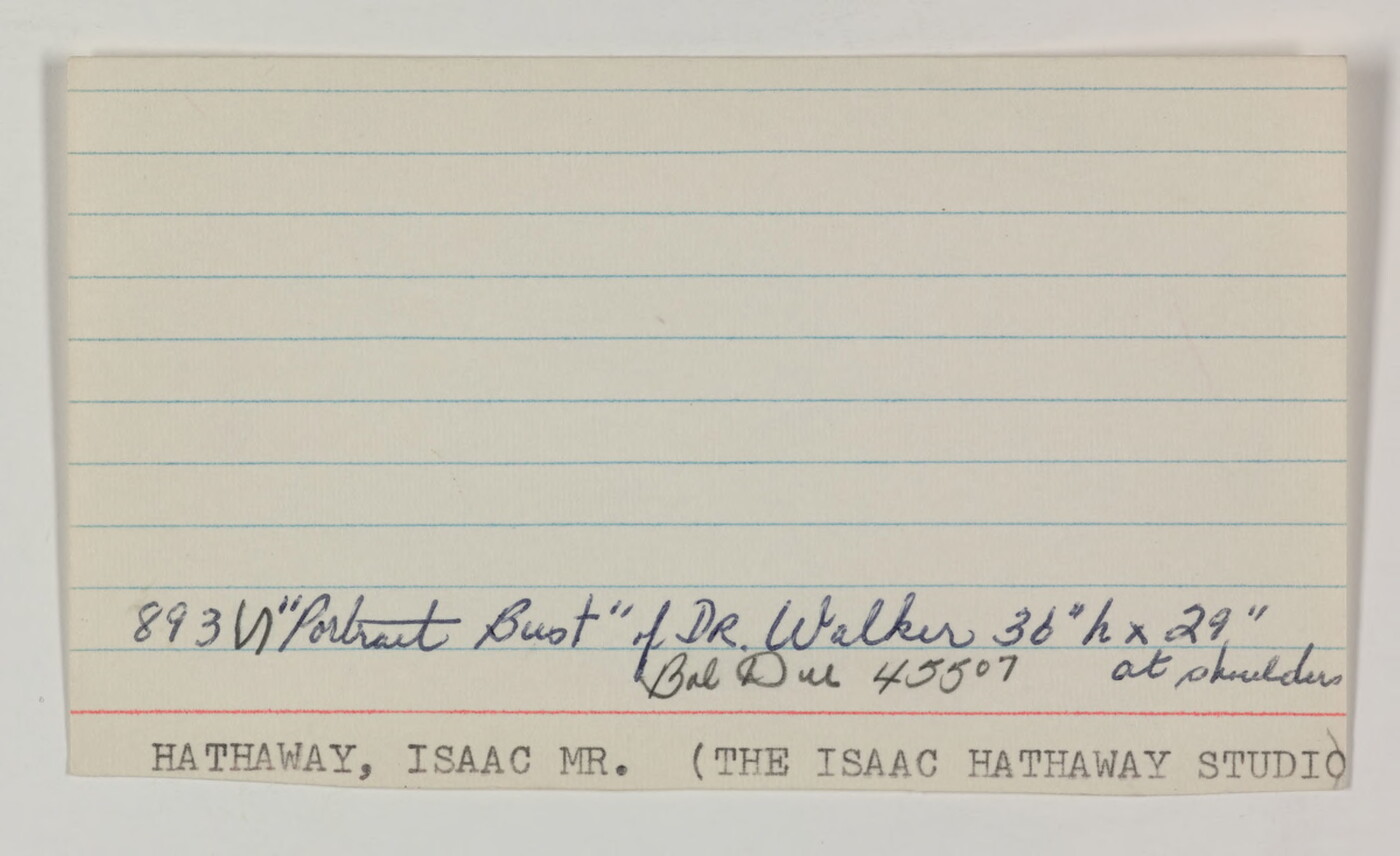 893 "Portrait Bust" of DR. Walker 36" h x 29"
Bal Due 45507 at shoulders
HATHAWAY, ISAAC MR. (THE ISAAC HATHAWAY STUDIO)